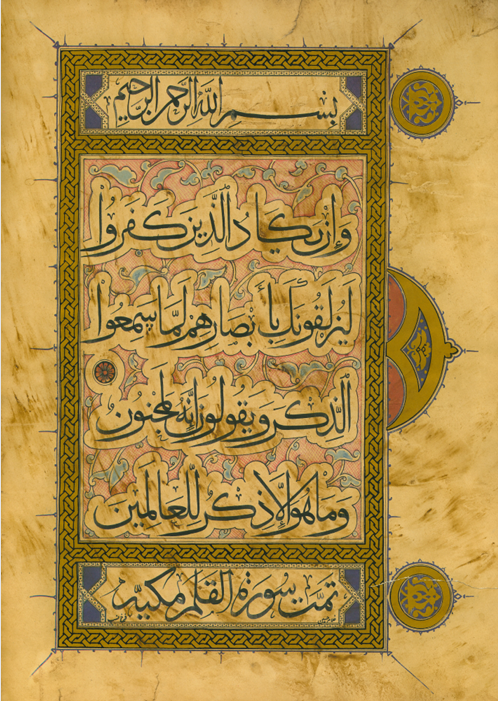 بسم الله الرحمن الرحيم
وإن يكاد الذين كفروا
ليزلقونك بأبصارهم لما سمعوا
الذكر ويقولون إنه لمجنون
وما هو إلا ذكر للعالمين
تمت سورة القلم مكية